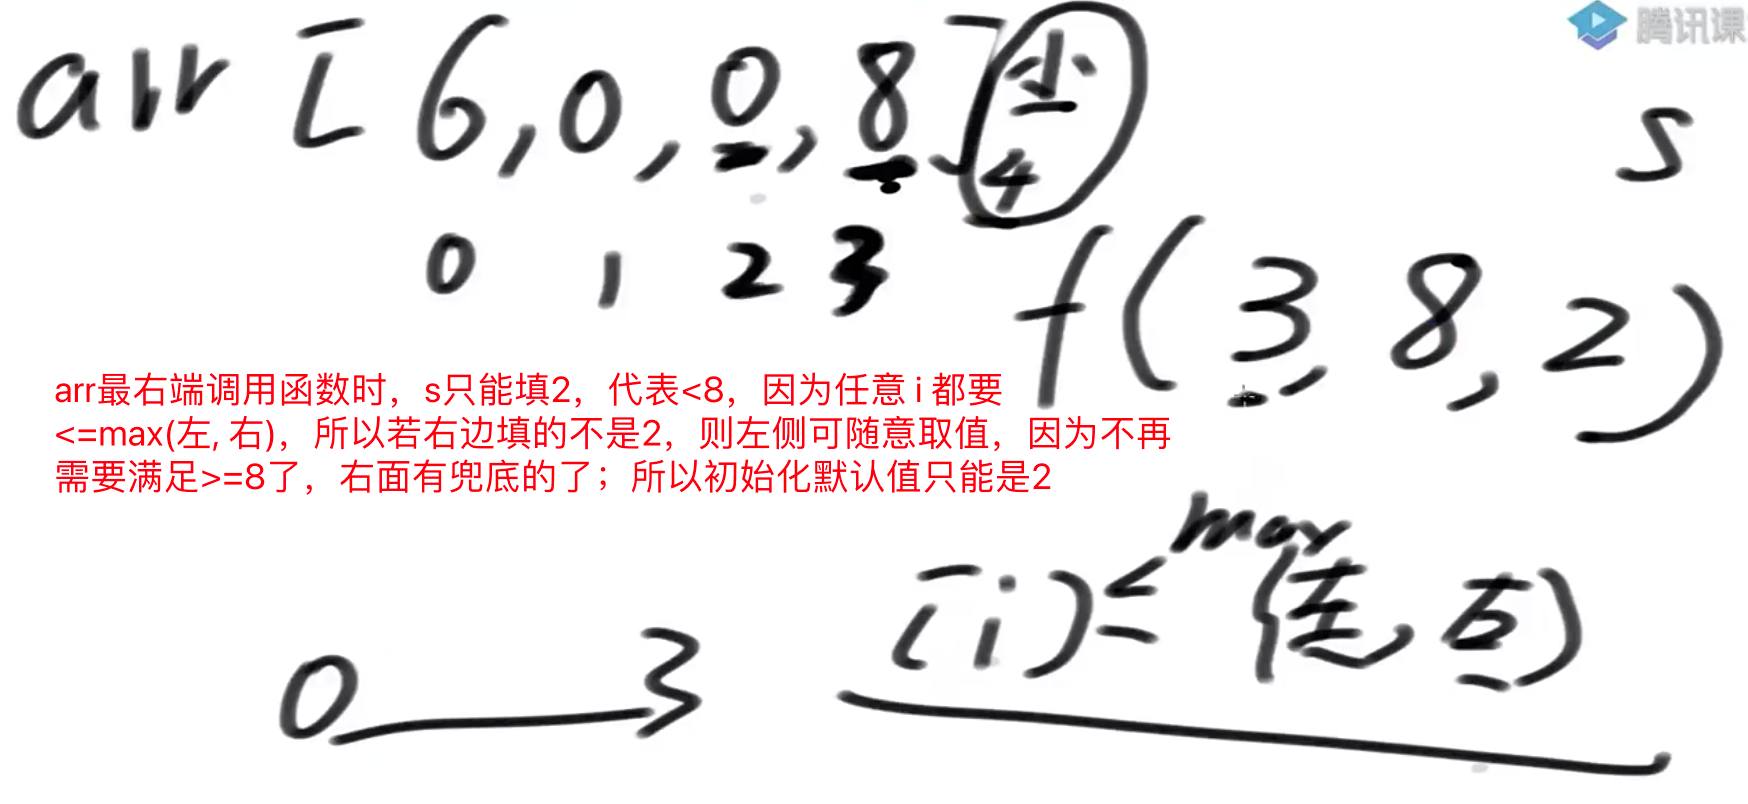 腾讯课
arr [6,0,0,8] 小
4
s
0 1 2 3
f(3,8,2)
arr最右端调用函数时，s只能填2，代表<8，因为任意 i 都要
<=max(左, 右)，所以若右边填的不是2，则左侧可随意取值，因为不再
需要满足>=8了，右面有兜底的了；所以初始化默认值只能是2
max
[i]≤(左,右)
0 3